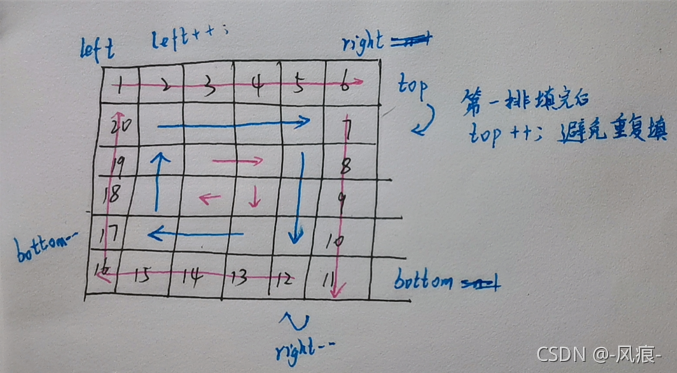 left left++; right
1 2 3 4 5 6 top
第一排填完后
top ++; 避免重复填
20 7
19 8
18 9
17 10
bottom--
16 15 14 13 12 11 bottom
right--
CSDN @-风痕-